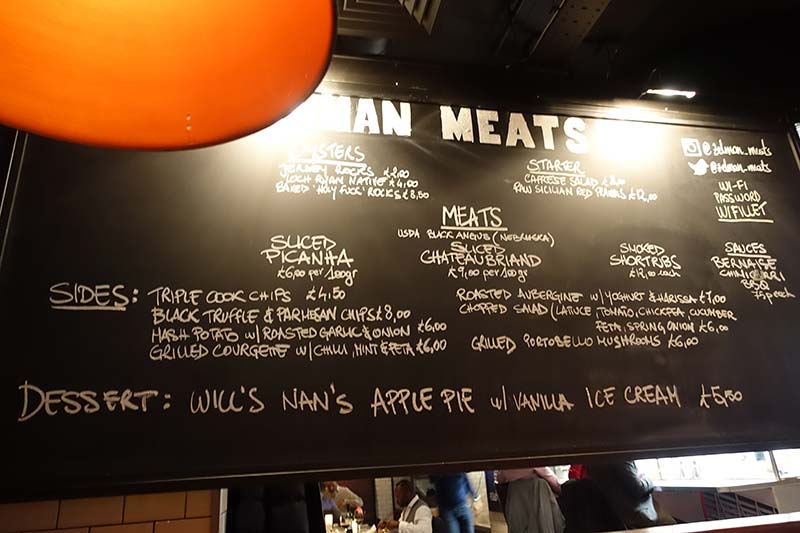 MAN MEATS
@zelman_meats
@zelman_meats
WI-FI
PASSWORD
WIFILLET
OYSTERS
JERSEY ROCKS £2,00
LOCH RYAN NATIVE £4,00
BAKED 'HOLY FUCK' ROCKS £3,50
STARTER
CAPRESE SALAD £8,00
RAW SICILIAN RED PRAWNS £12,00
MEATS
USDA BLACK ANGUS (NEBRASKA)
SLICED
PICANHA
£6,00 per 100gr
SLICED
CHATEAUBRIAND
£9,00 per 100gr
SMOKED
SHORTRIBS
£12,00 each
SAUCES
BERNAISE
CHIMICHURI
BBQ
75p each
SIDES: TRIPLE COOK CHIPS £4,50
BLACK TRUFFLE & PARMESAN CHIPS £8,00
MASH POTATO w/ ROASTED GARLIC & ONION £6,00
GRILLED COURGETTE w/ CHILLI, MINT & FETA, £6,00
ROASTED AUBERGINE w/ YOGHURT & HARISSA £7,00
CHOPPED SALAD (LATTUCE, TOMATO, CHICKPEA, CUCUMBER
FETA, SPRING ONION £6,00
GRILLED PORTOBELLO MUSHROOMS £6,00
DESSERT: WILL'S NAN'S APPLE PIE w/ VANILLA ICE CREAM £5,50